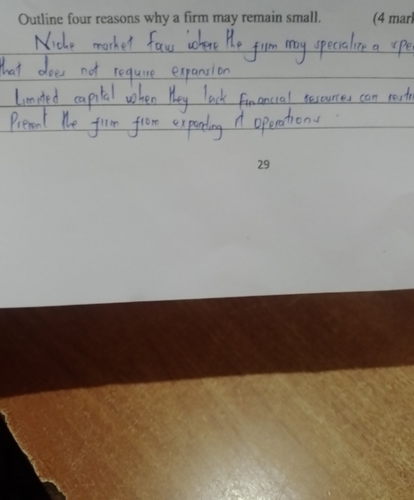 Outline four reasons why a firm may remain small. (4 mark
Niche market where the firm may specialize a
that does not require expansion
Limited capital when they lack financial resources can
Prevent the firm from expanding it operations.
29